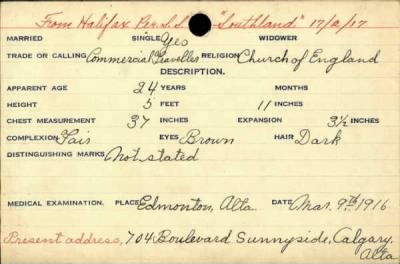 From Halifax Per. S.S. "Southland" 17/2/17
MARRIED SINGLE Yes WIDOWER
TRADE OR CALLING Commercial Traveller RELIGION Church of England
DESCRIPTION.
APPARENT AGE 24 YEARS MONTHS
HEIGHT 5 FEET 11 INCHES
CHEST MEASUREMENT 37 INCHES EXPANSION 3½ INCHES
COMPLEXION Fair EYES Brown HAIR Dark
DISTINGUISHING MARKS Not stated
MEDICAL EXAMINATION. PLACE Edmonton, Alta. DATE Mar. 9th 1916
Present address, 704 Boulevard Sunnyside, Calgary,
Alta